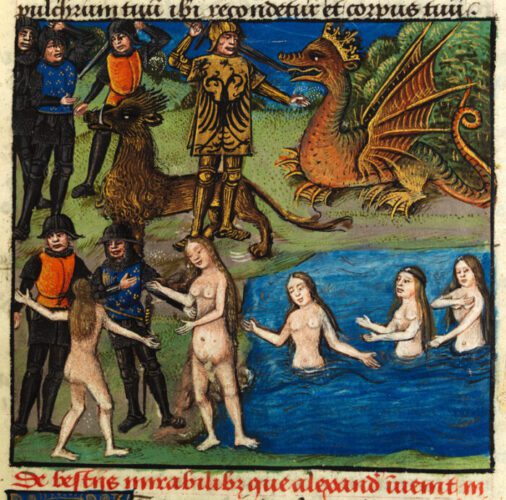 pulchrum tuū ibi recondetur et corpus tuū.
De bestijs mirabilibz que alexand' īvenit in